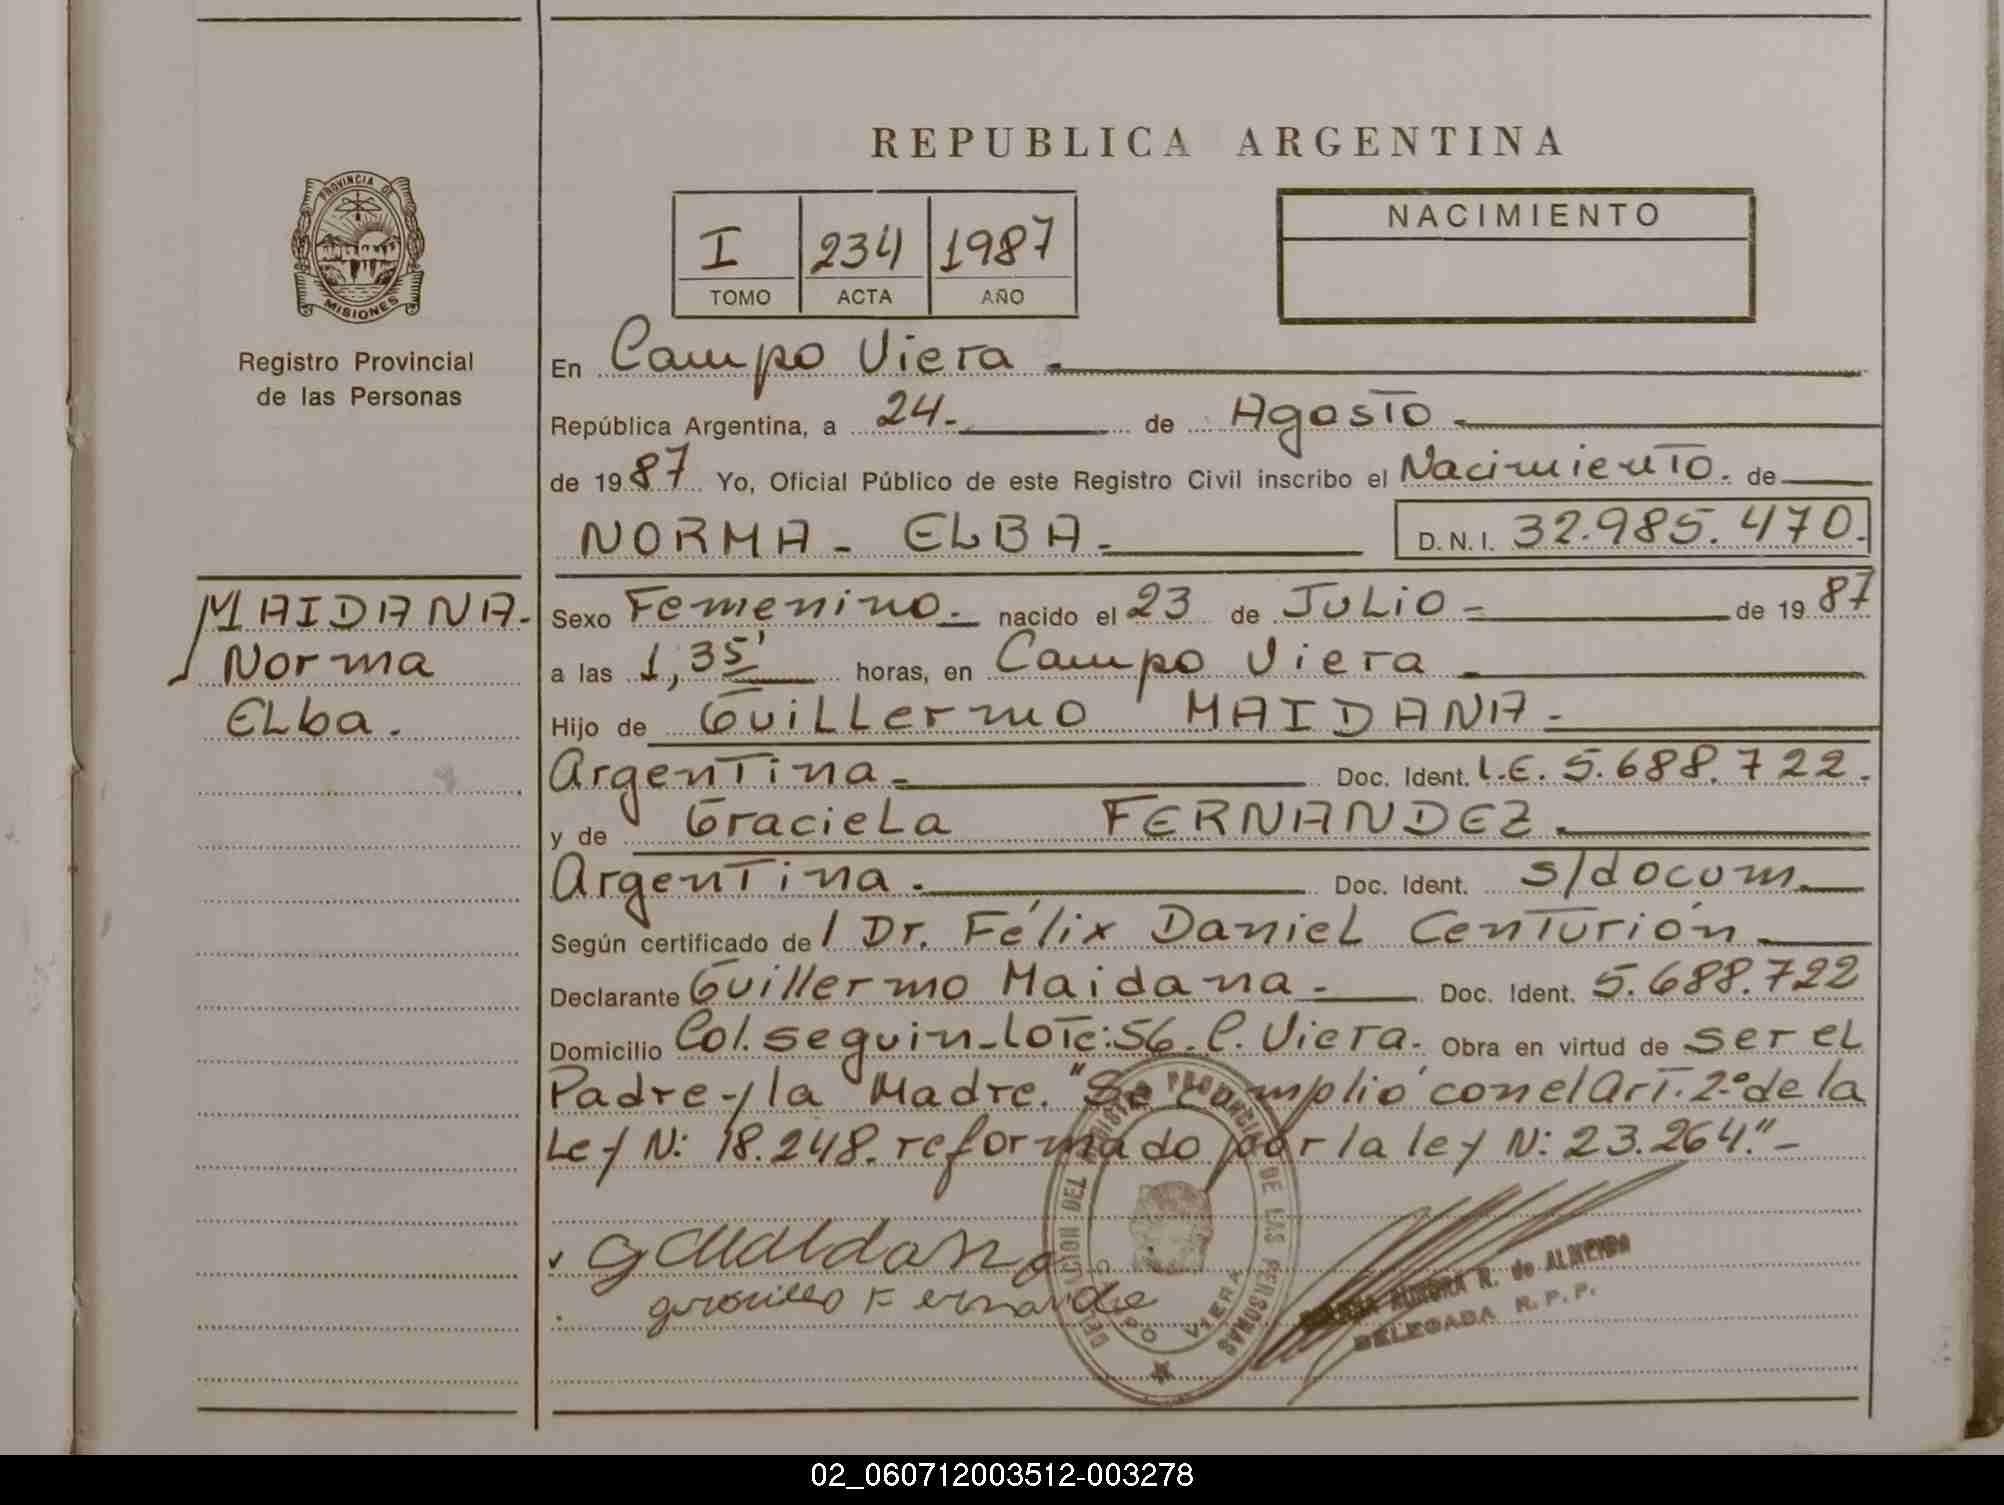 REPUBLICA ARGENTINA
PROVINCIA DE
MISIONES
Registro Provincial
de las Personas
I 234 1987
TOMO ACTA AÑO
NACIMIENTO
En Campo Viera
República Argentina, a 24- de Agosto
de 1987 Yo, Oficial Público de este Registro Civil inscribo el Nacimiento. de
NORMA - ELBA - D.N.I. 32.985.470.
MAIDANA -
Norma
ELba.
Sexo Femenino - nacido el 23 de JuLio - de 1987
a las 1,35' horas, en Campo Viera
Hijo de GuiLLermo MAIDANA -
Argentina - Doc. Ident. L.E. 5.688.722.
y de GracieLa FERNANDEZ.
Argentina. Doc. Ident. s/docum
Según certificado de / Dr. Félix DanieL Centurión
Declarante Guillermo Maidana - Doc. Ident. 5.688.722
Domicilio Col. seguin - Lote: 56 - C. Viera. Obra en virtud de ser eL
Padre y la Madre. "Se cumplió con el Art. 2º de la
Ley N: 18.248. reformado por la ley N: 23.264." -
DELEGACION DEL REGISTRO PROVINCIAL DE LAS PERSONAS
CAMPO VIERA
AURORA R. de ALMEIDA
DELEGADA R. P. P.
02_060712003512-003278